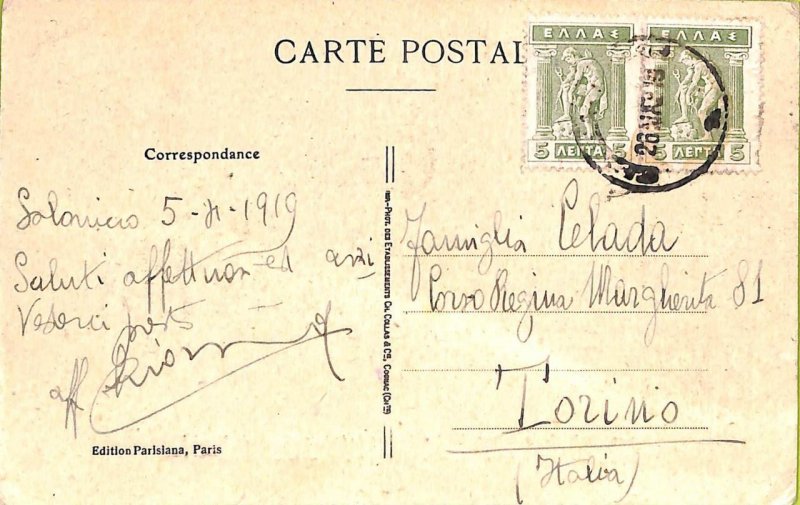 CARTE POSTAL
ΕΛΛΑΣ
ΕΛΛΑΣ
5 ΛΕΠΤΑ 5
5 ΛΕΠΤΑ 5
Correspondance
Salonicco 5-II-1919
Saluti affettuosi ed
Vederci presto
aff
Famiglia Celada
Corso Regina Margherita 81
Torino
(Italia)
IMP.-PHOT. DES ETABLISSEMENTS CH. COLLAS & CIE, COGNAC (CHTE)
Edition Parisiana, Paris